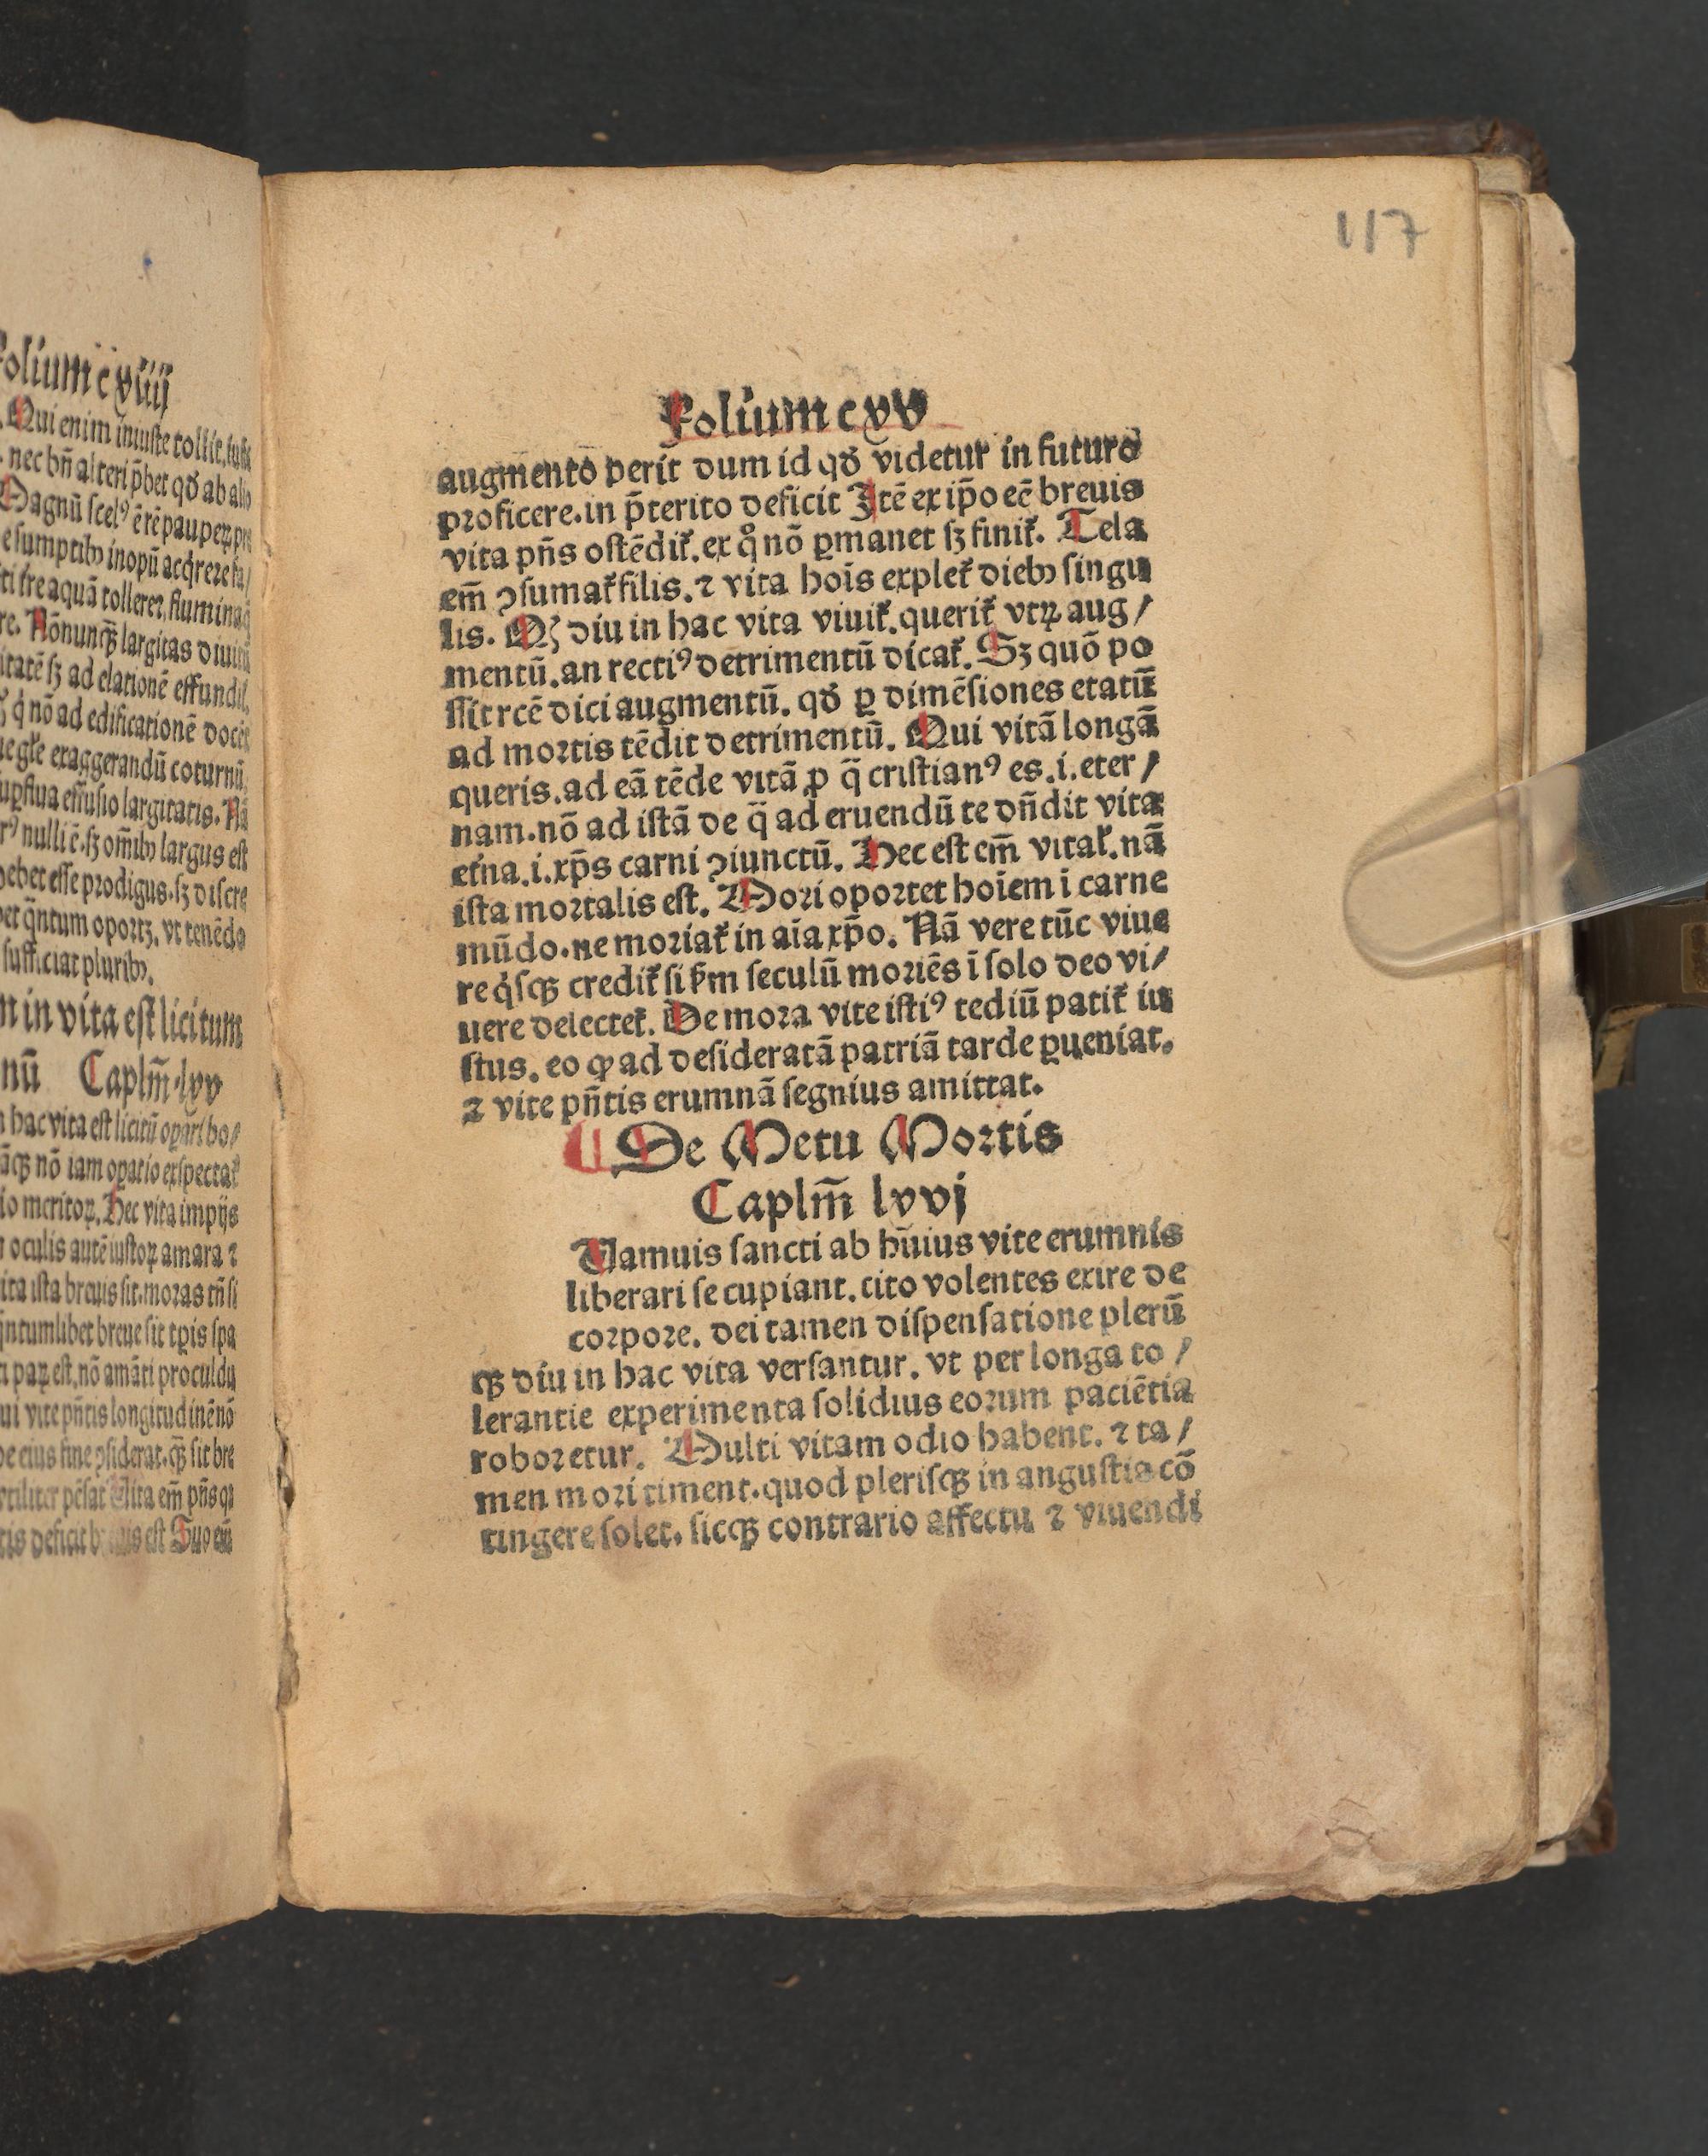 Folium cviiij
Qui enim iniuste tollit, iuste
nec bñ alteri p̄bet qđ ab alio
Magnū scelꝰ ē rē pauperꝝ
e sumptibꝫ inopū
aquā tolleret fluminaq̄
re. Nōnunqꝫ largitas diuitū
itatē sꝫ ad elationē effundit.
q̇ nō ad edificationē docēt
exaggerandū coturnū.
effusio largitatis. Nā
nulli ē. sꝫ om̄ibꝫ largus est
debet esse prodigus. sꝫ discre
q̄ntum oportꝫ. vt tenēdo
sufficiat pluribꝫ.
in vita est licitum
nū Caplm̄ . lxx
hac vita est licitū oꝑari bo⸗
nō iam oꝑatio exspectat᷑
io meritoꝝ. Hec vita impijs
oculis autē iustoꝝ amara ⁊
ita ista breuis sit. moras tn̄ si
q̄ntumlibet breue sit tp̄is spa
paꝝ est, nō amāti proculdu
ui vite pn̄tis longitudinē nō
de eius fine ꝯsiderat. qꝫ sit bre
vtiliter pēsat Vita em̄ pn̄s qͥ
deficit breuis est Suo em̄
117
Folium cxv
augmento perit dum id qđ videtur in futuro
proficere. in p̄terito deficit Itē ex ip̄o eē breuis
vita pn̄s ostēdit᷑. ex q̊ nō ꝑmanet sꝫ finit᷑. Tela
em̄ ꝯsumat᷑ filis. ⁊ vita hoīs explet᷑ diebꝫ singu
lis. Qꝫ diu in hac vita viuit᷑. querit᷑ vtꝝ aug⸗
mentū. an rectiꝰ detrimentū dicat᷑. Sꝫ quō po
ssit rcē dici augmentū. qđ ꝑ dimēsiones etatū
ad mortis tēdit detrimentū. Qui vitā longā
queris. ad eā tēde vitā ꝓ q̄ cristianꝰ es. i. eter⸗
nam. nō ad istā de q̄ ad eruendū te dn̄dit vita
et̄na. i. xp̄s carni ꝯiunctū. Hec est em̄ vital᷑. nā
ista mortalis est. Mori oportet hoīem i carne
mūdo. ne moriat᷑ in aīa xp̄o. Nā vere tūc viue
re q̇sqꝫ credit᷑ si ẜm seculū moriēs ī solo deo vi⸗
uere delectet᷑. De mora vite istiꝰ tediū patit᷑ iu
stus. eo ꝙ ad desideratā patriā tarde ꝑueniat.
⁊ vite pn̄tis erumnā segnius amittat.
¶ De Metu Mortis
Caplm̄ lxxj
Uamuis sancti ab huius vite erumnis
liberari se cupiant. cito volentes exire de
corpore. dei tamen dispensatione plerū
qꝫ diu in hac vita versantur. vt per longa to⸗
lerantie experimenta solidius eorum paciētia
roboretur. Multi vitam odio habent. ⁊ ta⸗
men mori timent. quod plerisqꝫ in angustia cō
tingere solet. sicqꝫ contrario affectu ⁊ viuendi